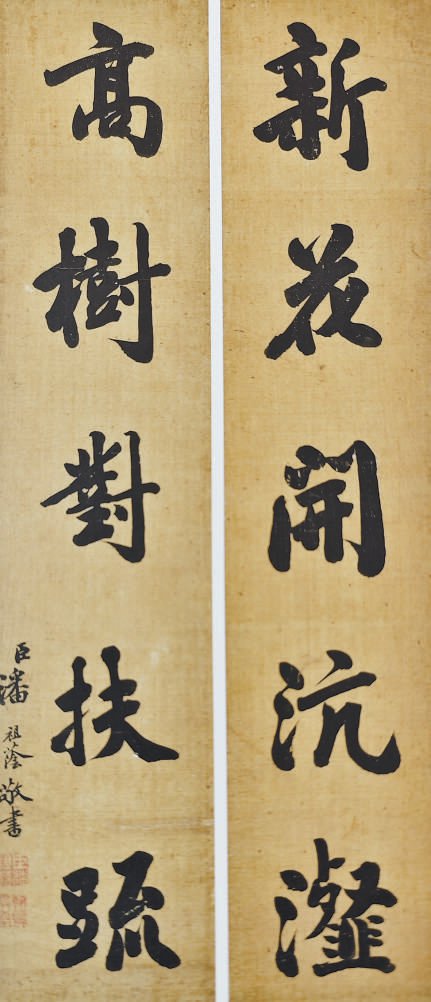 新花開沆瀣
高樹對扶疏
臣潘祖蔭敬書